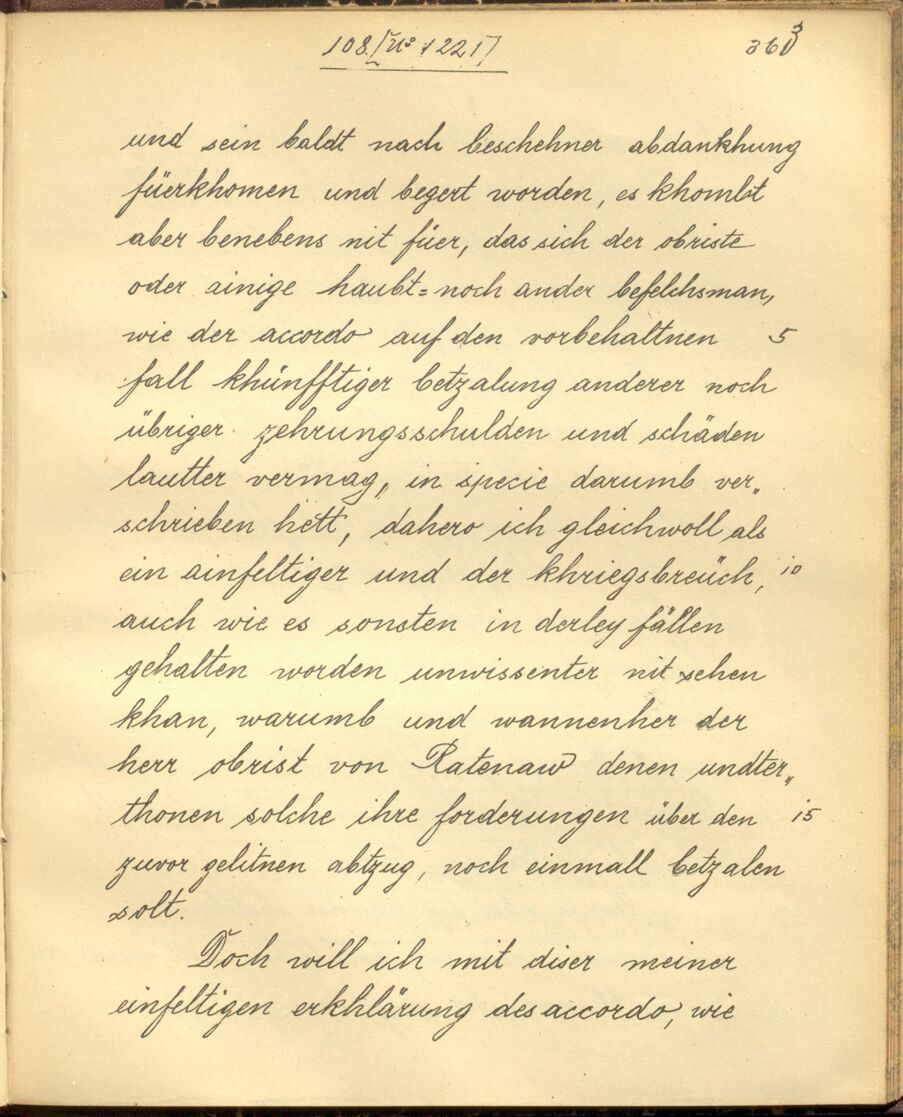 108. [No 1221] 363
und sein baldt nach beschehner abdankhung
füerkhomen und begert worden, es khombt
aber benebens nit füer, das sich der obriste
oder ainige haubt= noch ander befelchsman,
wie der accordo auf den vorbehaltnen 5
fall khünfftiger betzalung anderer noch
übriger zehrungsschulden und schäden
lautter vermag, in specie darumb ver„
schrieben hett, dahero ich gleichwoll als
ein ainfeltiger und der khriegsbreüch, 10
auch wie es sonsten in derley fällen
gehalten worden unwissenter nit sehen
khan, warumb und wannenher der
herr obrist von Ratenaw denen undter„
thonen solche ihre forderungen über den 15
zuvor gelitnen abtzug, noch einmall betzalen
solt.
Doch will ich mit diser meiner
einfeltigen erkhlärung des accordo, wie